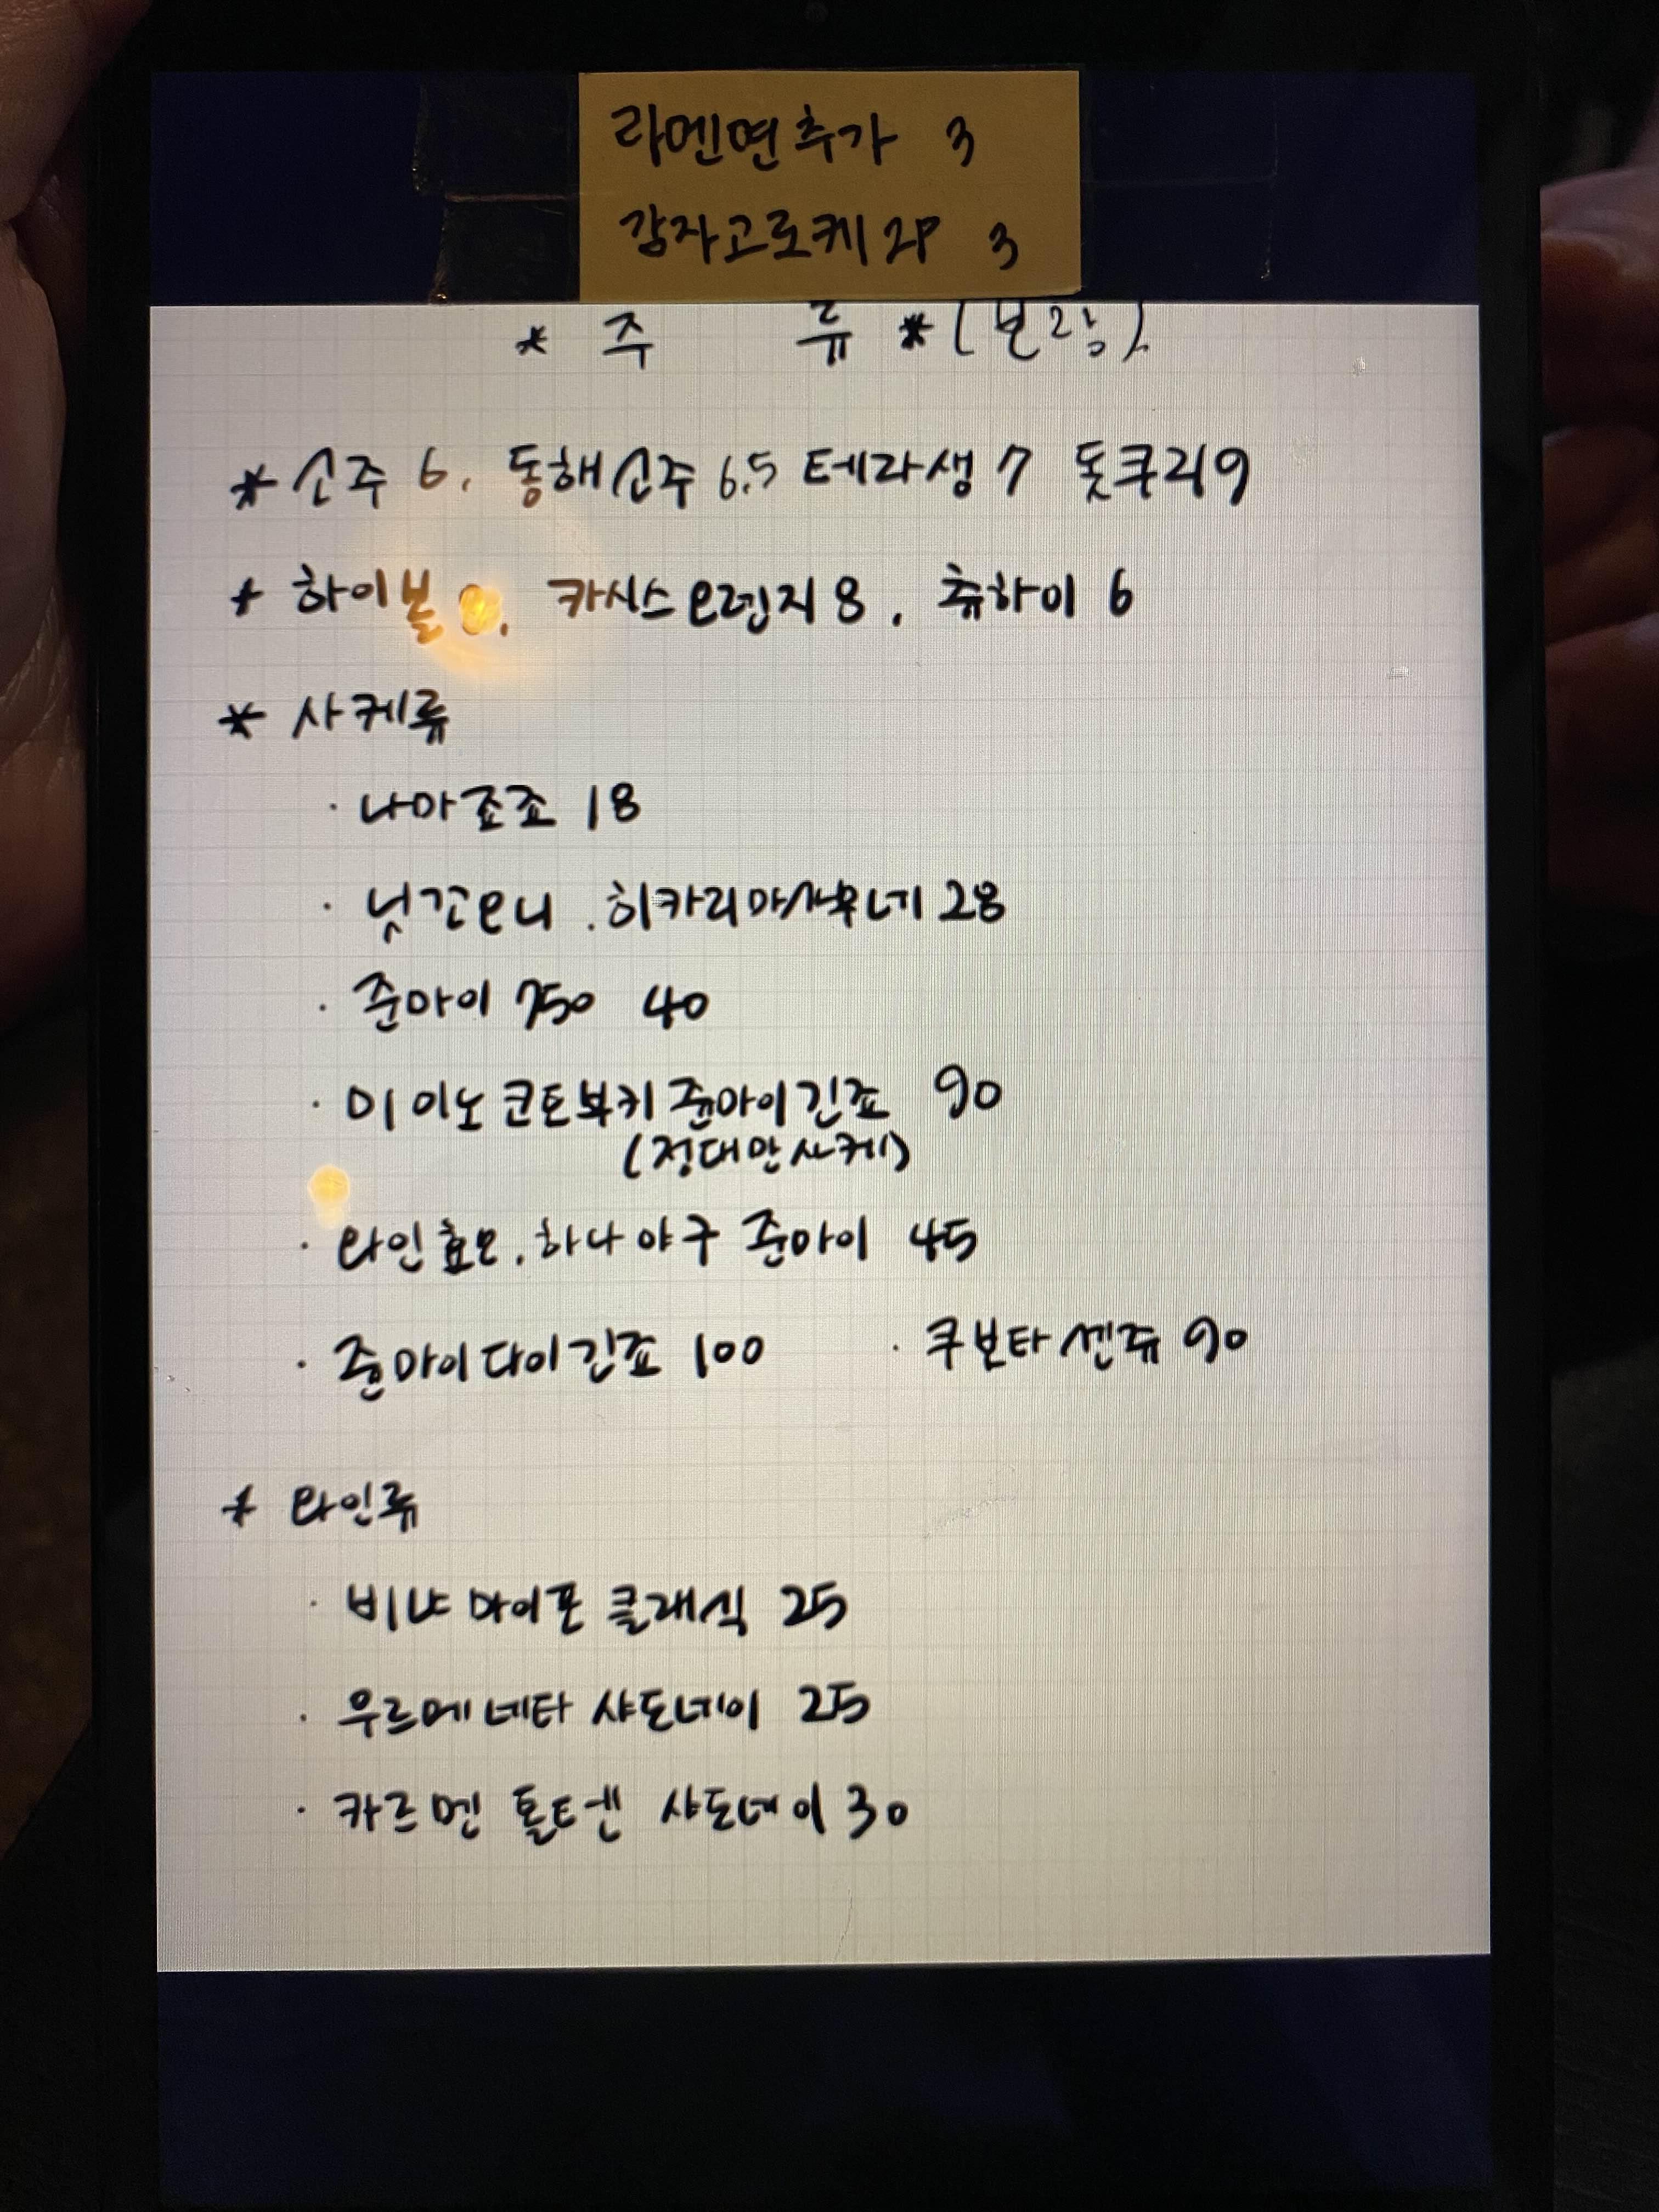 라멘면추가 3
감자고로케 2P 3
* 주 류 *
* 소주 6. 동해소주 6.5 테라생 7 돗쿠리 9
* 하이볼 . 카시스오렌지 8 . 츄하이 6
* 사케류
· 나마죠조 18
· 닛꼬오니 . 히카리마사무네 28
· 준마이 750 40
· 미이노코토부키 쥰마이긴죠 90
(정대만사케)
· 와인효모 . 하나야구 준마이 45
· 준마이다이긴죠 100 · 쿠보타센쥬 90
* 와인류
· 비냐마이포 클래식 25
· 우르메네타 샤도네이 25
· 카르멘 톨텐 샤도네이 30